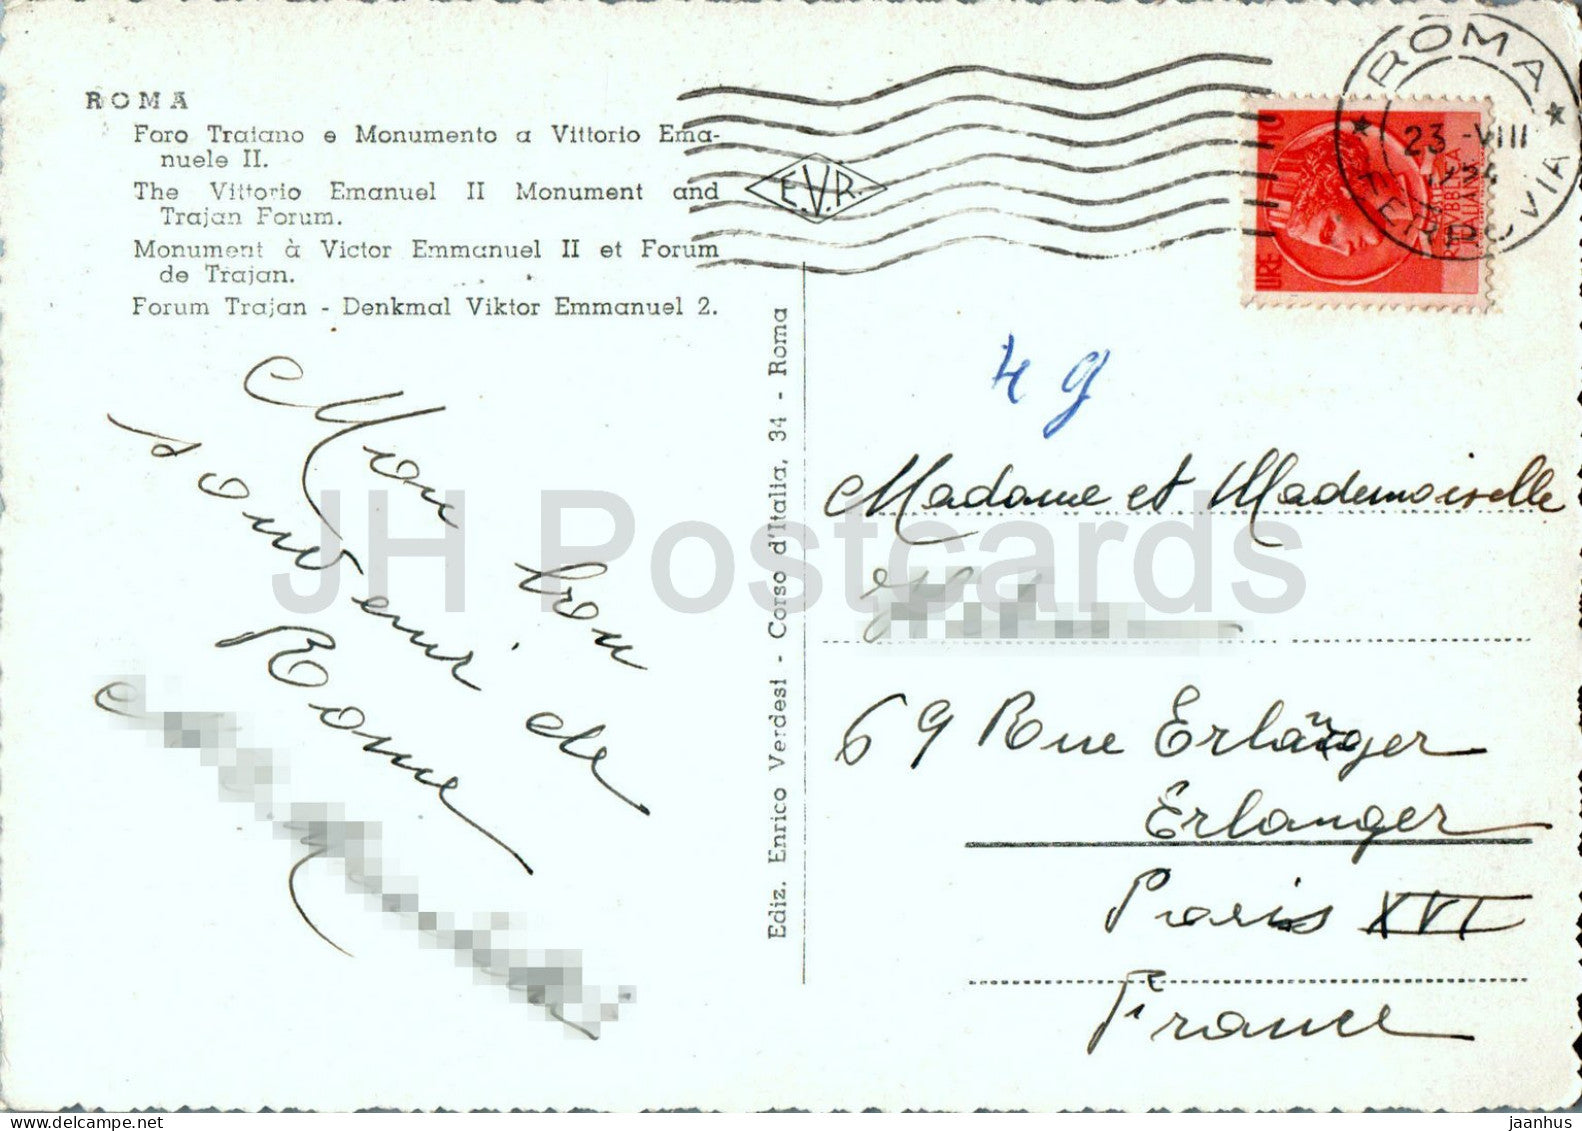 ROMA
Foro Traiano e Monumento a Vittorio Ema-
nuele II.
The Vittorio Emanuel II Monument and
Trajan Forum.
Monument à Victor Emmanuel II et Forum
de Trajan.
Forum Trajan - Denkmal Viktor Emmanuel 2.
E.V.R.
ROMA
23 -VIII
1954
FERROVIA
LIRE 10
REPUBBLICA
ITALIANA
Mon bon
souvenir de
Rome
Ediz. Enrico Verdesi - Corso d'Italia, 34 - Roma
49
Madame et Mademoiselle
69 Rue Erlanger
Erlanger
Paris XVI
France
JH Postcards
jaanhus